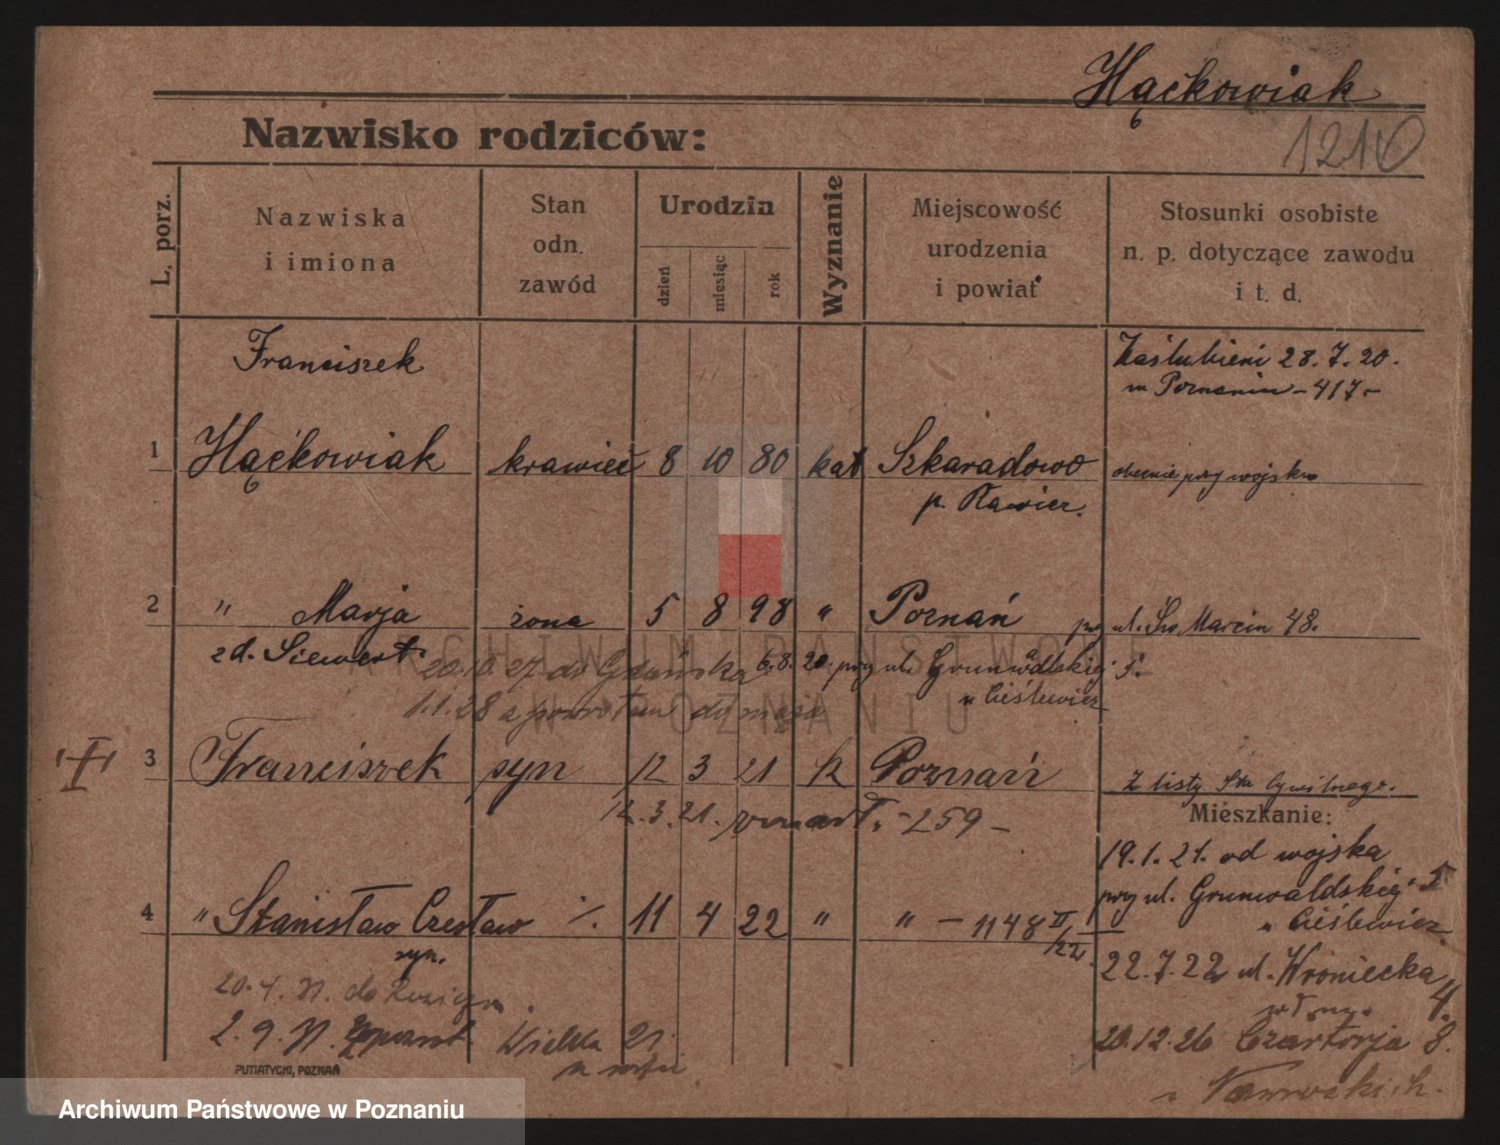 Hąćkowiak
1210
Nazwisko rodziców:
L. porz.
Nazwiska
i imiona
Stan
odn.
zawód
Urodzin
dzień
miesiąc
rok
Wyznanie
Miejscowość
urodzenia
i powiat
Stosunki osobiste
n. p. dotyczące zawodu
i t. d.
Franciszek
Zaślubieni 28.7.20.
w Poznaniu - 417 -
1 Hąćkowiak krawiec 8 10 80 kat Szkaradowo obecnie przy wojsku
p. Rawicz.
2 " Marja żona 5 8 98 " Poznań przy ul. Św Marcin 48.
zd. Siewert 6.8.20. przy ul. Grunwaldskiej 5.
20.10.27 do Gdańska
u Cieślewicz
1.1.28 z powrotem do męża
3 Franciszek syn 12 3 21 k Poznań
Z listy Stu Cywilnego.
12.3.21. zmarł. - 259 -
Mieszkanie:
19.1.21. od wojska
przy ul. Grunwaldskiej 5
u Cieślewicz
4 " Stanisław Czesław ./. 11 4 22 " " - 1148 II/22
syn.
22.7.22 ul. Wroniecka 4.
20.12.26 Czartorja 8.
do
2.9.
Wielka 21.
PUTIATYCKI, POZNAŃ
ARCHIWUM PAŃSTWOWE
W POZNANIU
Archiwum Państwowe w Poznaniu